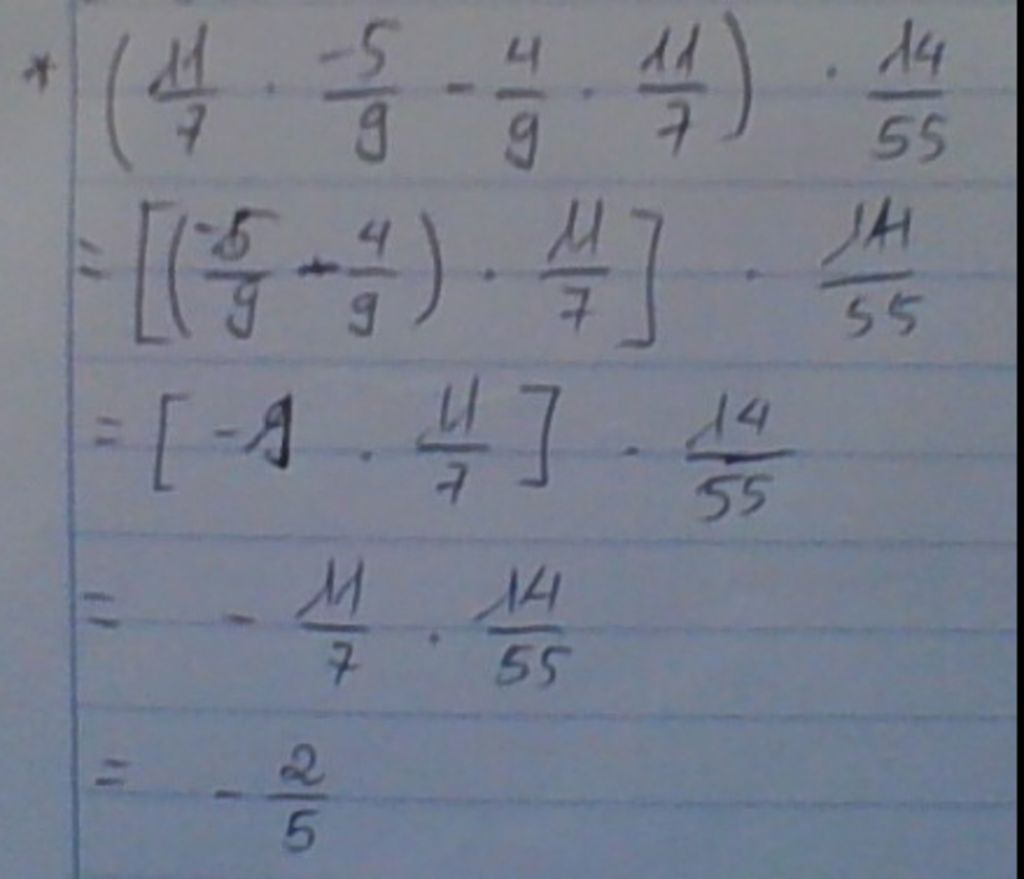 * (11/7 · -5/9 - 4/9 · 11/7) · 14/55
= [(-5/9 - 4/9) · 11/7] · 14/55
= [-1 · 11/7] · 14/55
= - 11/7 · 14/55
= - 2/5